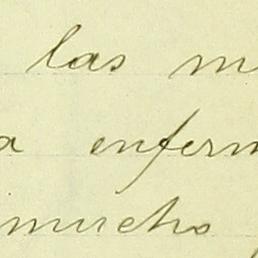 las m
a enferm
mucho